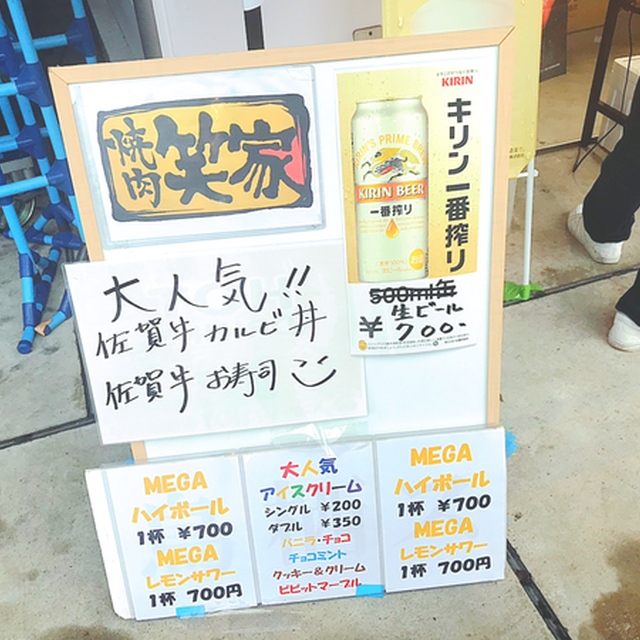 焼肉笑家
KIRIN
キリン一番搾り
KIRIN'S PRIME BREW
KIRIN BEER
一番搾り
500ml缶
生ビール
¥700-
大人気!!
佐賀牛カルビ丼
佐賀牛お寿司
MEGA
ハイボール
1杯 ¥700
MEGA
レモンサワー
1杯 700円
大人気
アイスクリーム
シングル ¥200
ダブル ¥350
バニラ・チョコ
チョコミント
クッキー&クリーム
ビビットマーブル
MEGA
ハイボール
1杯 ¥700
MEGA
レモンサワー
1杯 700円